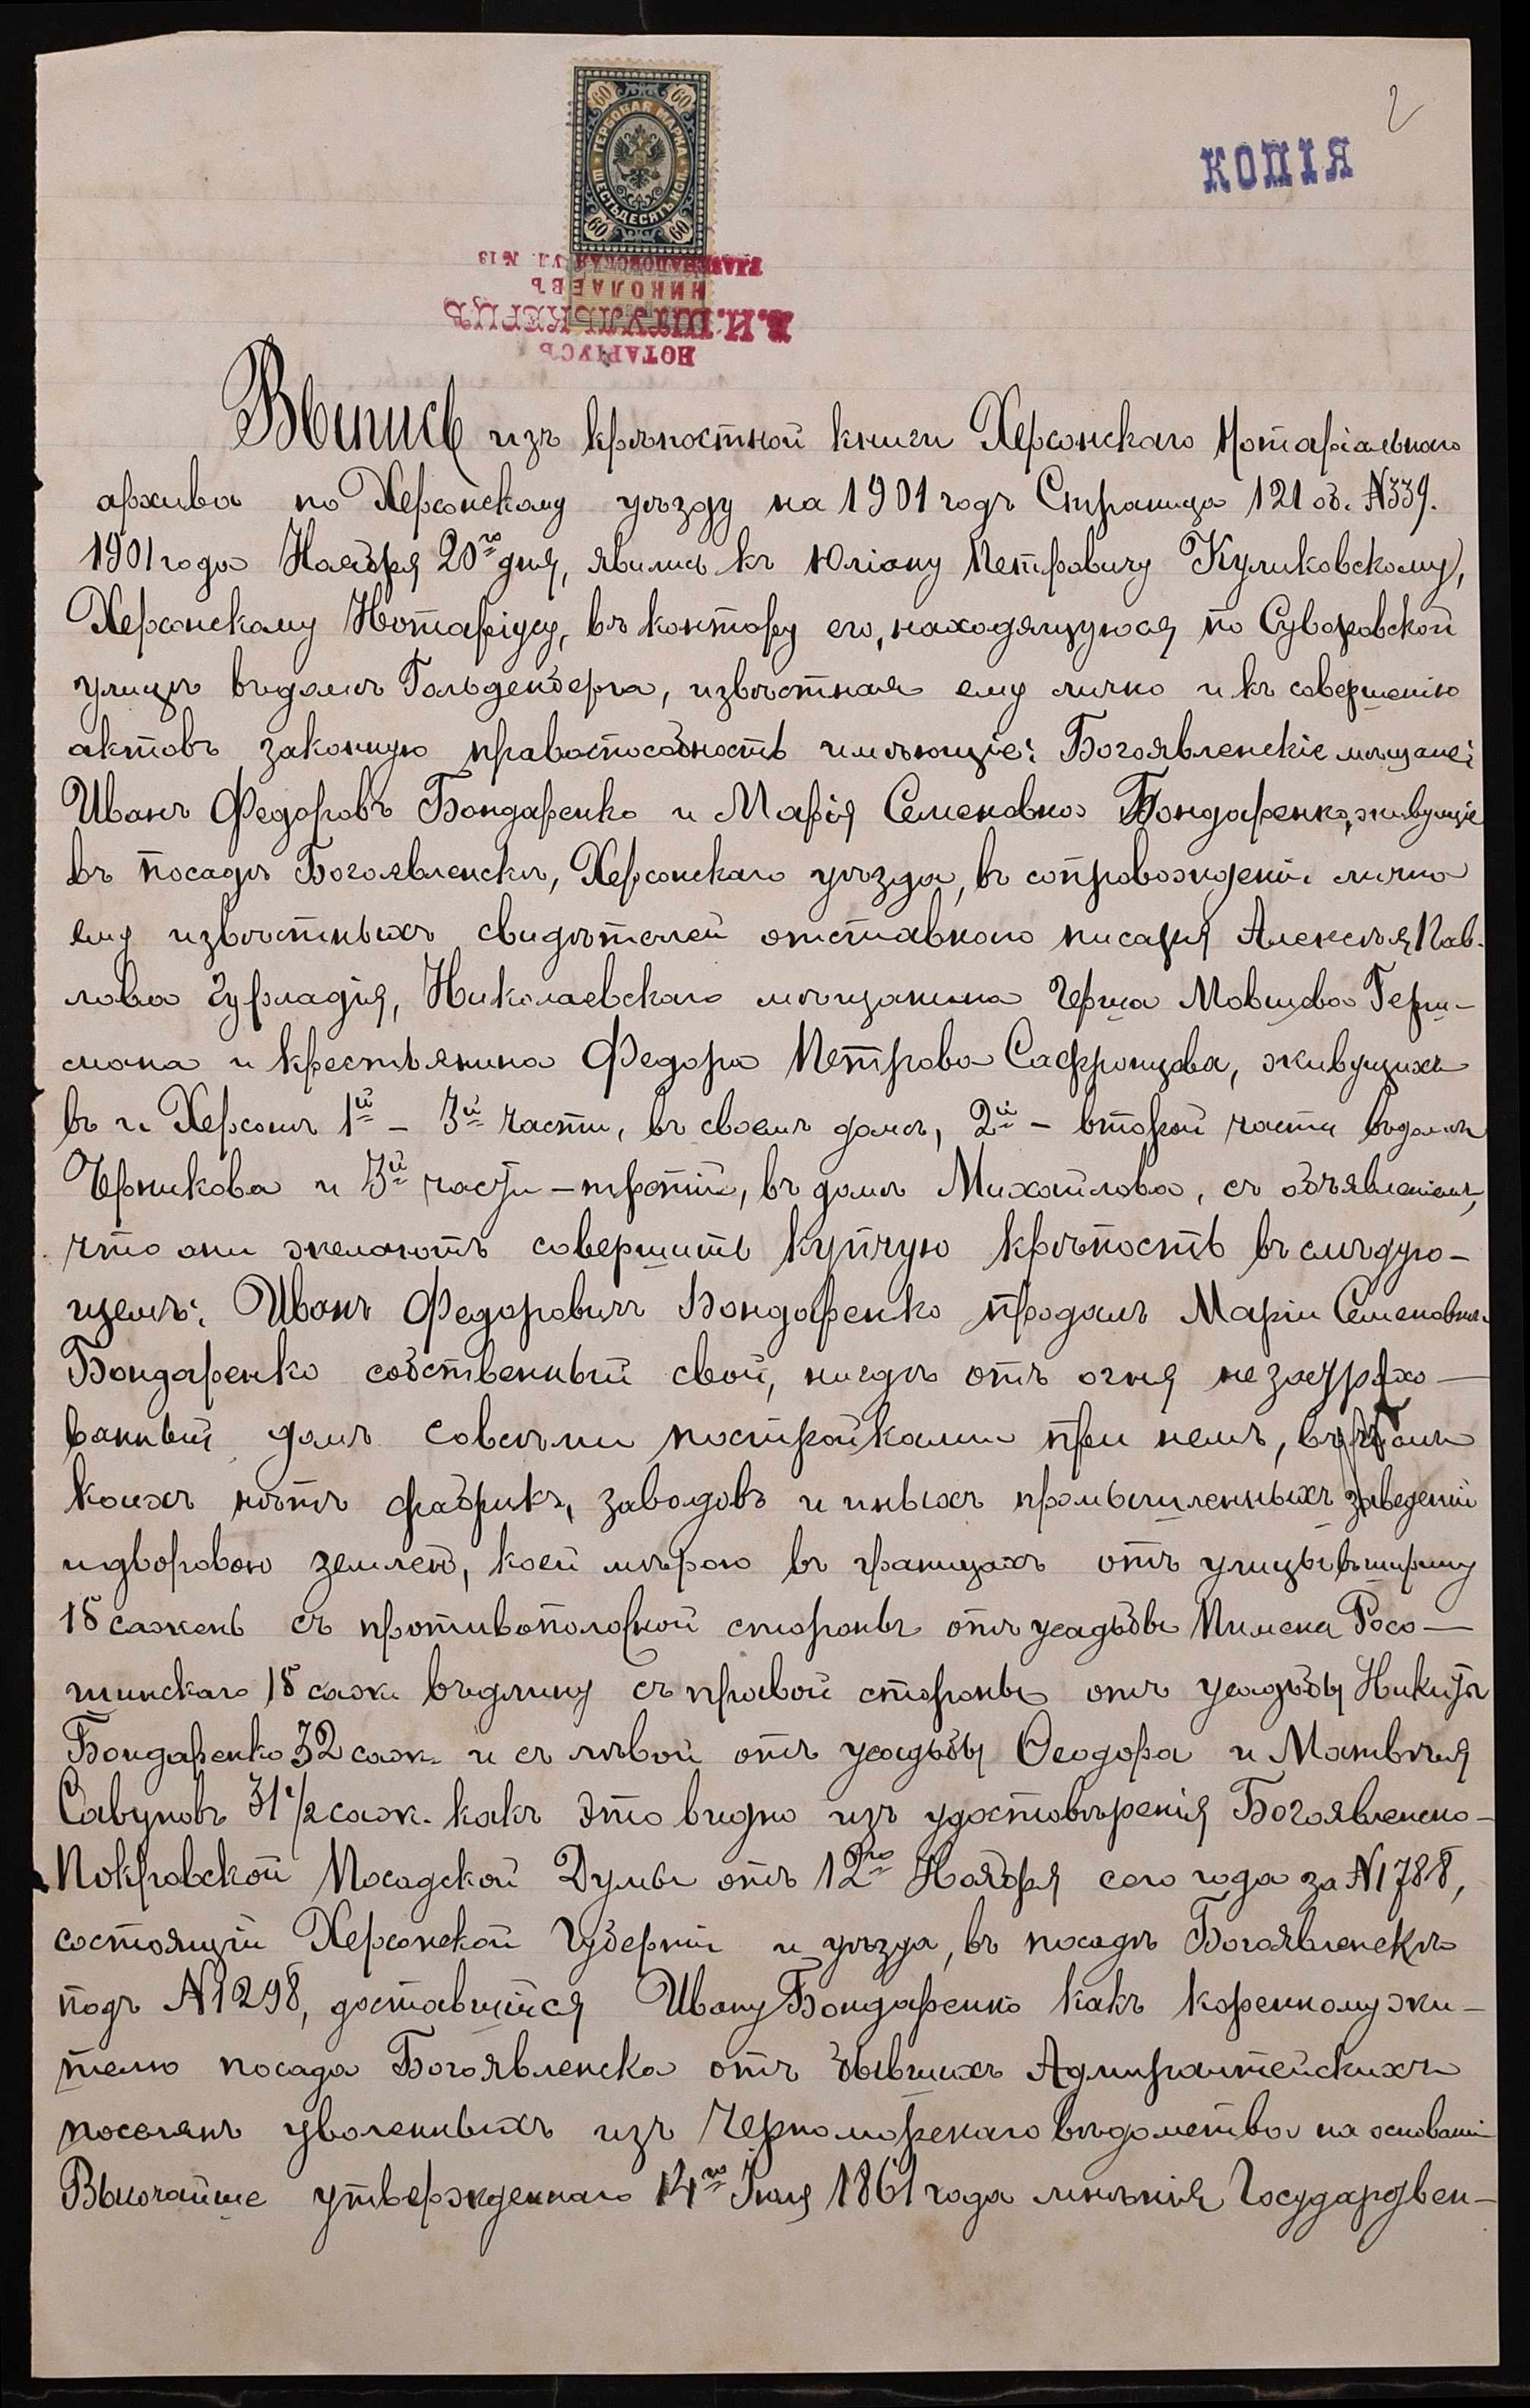 2
КОПІЯ
60 60
ГЕРБОВАЯ МАРКА
ШЕСТЬДЕСЯТЪ КОП.
60 60
НОТАРІУСЪ
НИКОЛАЕВЪ
УЛ. №13
Выпись изъ крѣпостной книги Херсонскаго Нотаріальнаго
архива по Херсонскому уѣзду на 1901 годъ Страница 121 об. №339.
1901 года Ноября 20го дня, явились къ Юліану Петровичу Куликовскому,
Херсонскому Нотаріусу, въ контору его, находящуюся по Суворовской
улицѣ въ домѣ Гольденберга, извѣстная ему лично и къ совершенію
актовъ законную правоспособность имѣющіе: Богоявленскіе мѣщане:
Иванъ Федоровъ Бондаренко и Марія Семеновна Бондаренко, живущіе
въ посадѣ Богоявленскѣ, Херсонскаго уѣзда, въ сопровожденіи лично
ему извѣстныхъ свидѣтелей отставного писаря Алексѣя Пав-
лова Гурладія, Николаевскаго мѣщанина Герша Мовшева Герш-
мана и крестьянина Федора Петрова Сафронцова, живущихъ
въ г. Херсонѣ 1й - 3й части, въ своемъ домѣ, 2й - второй части въ домѣ
Черникова и 3й части - третій, въ домѣ Михайлова, съ объявленіемъ,
что они желаютъ совершить купчую крѣпость въ слѣдую-
щемъ: Иванъ Федоровичъ Бондаренко продалъ Маріи Семеновнѣ
Бондаренко собственный свой, нигдѣ отъ огня не застрахо-
ванный домъ со всѣми постройками при немъ, въ
коихъ нѣтъ фабрикъ, заводовъ и иныхъ промышленныхъ заведеній
и дворовою землею, коей мѣрою въ границахъ отъ улицы въ ширину
18 сажень съ противоположной стороны отъ усадьбы Пимена Росо-
шинскаго 18 саж. въ длину съ правой стороны отъ усадьбы Никиты
Бондаренко 32 саж. и съ лѣвой отъ усадьбы Ѳеодора и Матвѣя
Савуновъ 31 1/2 саж. какъ это видно изъ удостовѣренія Богоявленско-
Покровской Посадской Думы отъ 12го Ноября сего года за №1788,
состоящій Херсонской Губерніи и уѣзда, въ посадѣ Богоявленскѣ
подъ №1298, доставшійся Ивану Бондаренко какъ коренному жи-
телю посада Богоявленска отъ бывшихъ Адмиралтейскихъ
поселянъ уволенныхъ изъ Черноморскаго вѣдомства на основаніи
Высочайше утвержденнаго 14го Іюля 1861 года мнѣнія Государствен-